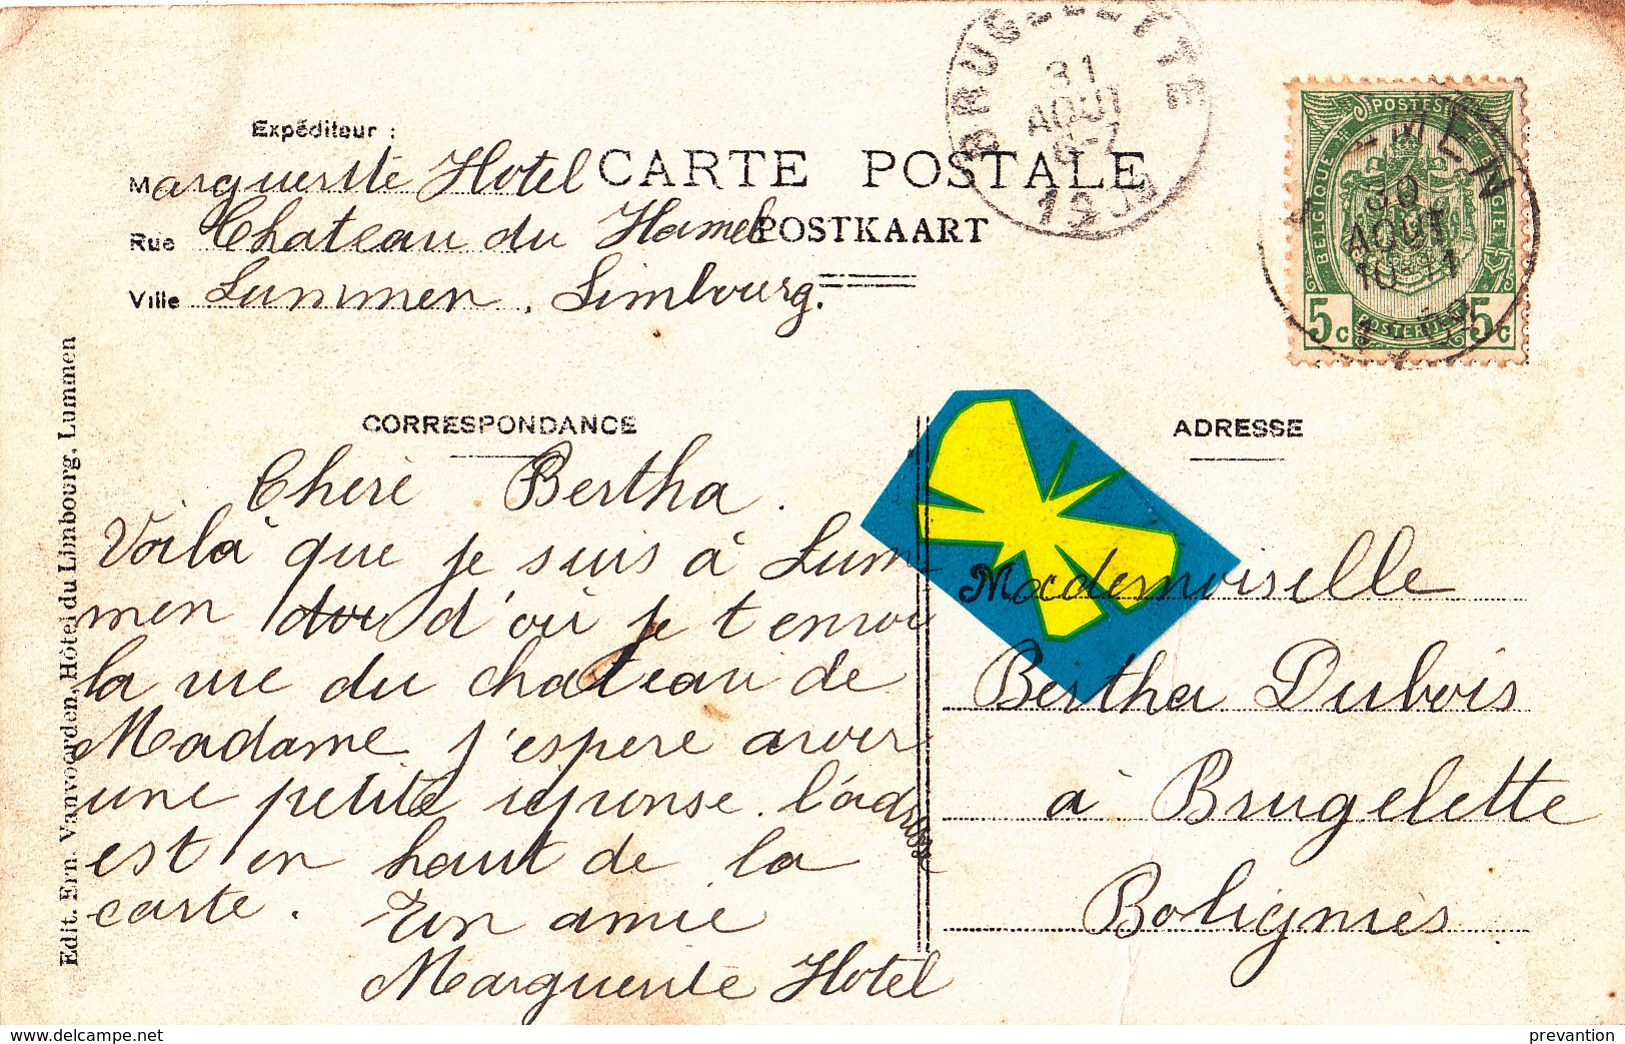 Expéditeur :
Marguerite Hotel
CARTE POSTALE
Rue Chateau du Hamel
POSTKAART
Ville Lummen, Limbourg.
BRUGELETTE
31
AOUT
6-7
POSTES
BELGIQUE
30
AOUT
10-11
5c 5c
POSTERIJEN
CORRESPONDANCE
Chere Bertha.
Voilà que je suis à Lum-
men d'où je t envoi
la vue du chateau de
Madame j'espere avoir
une petite reponse. l'adresse
est en haut de la
carte. Ton amie
Marguerite Hotel
ADRESSE
Mademoiselle
Bertha Dubois
à Brugelette
Bolignies
Edit. Ern. Vanvoorden, Hôtel du Limbourg, Lummen
https://www.delcampe.net
prevantion